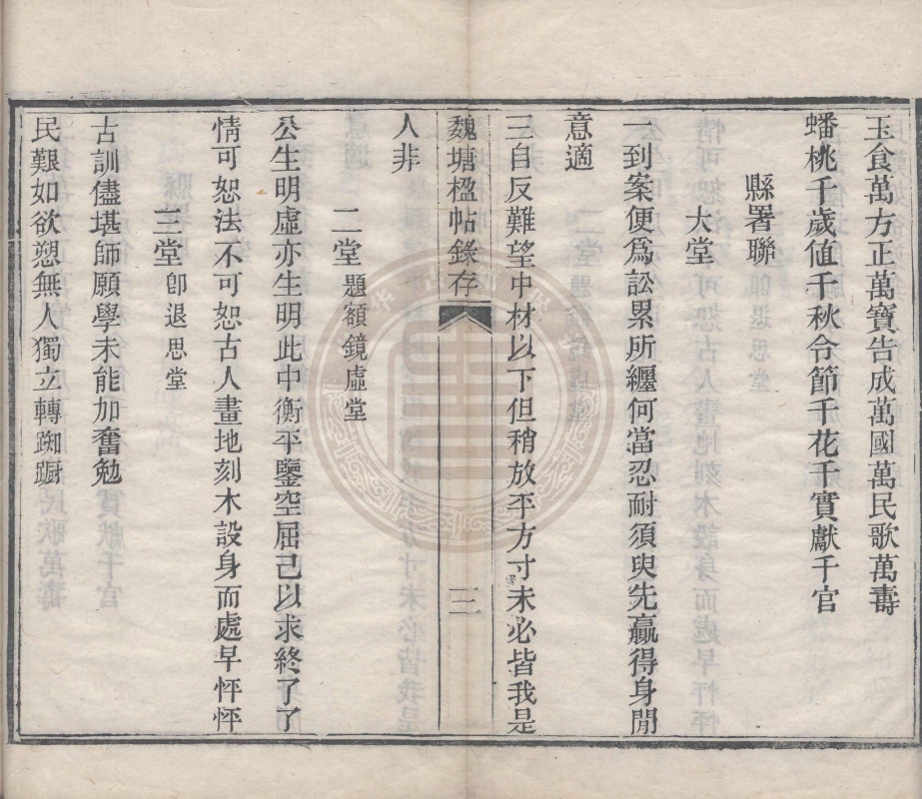 玉食萬方正萬寶告成萬國萬民歌萬壽
蟠桃千歲値千秋令節千花千實獻千官
縣署聯
大堂
一到案便爲訟累所纏何當忍耐須臾先贏得身閒
意適
三自反難望中材以下但稍放平方寸未必皆我是
魏塘楹帖錄存
二
人非
二堂題額鏡虛堂
公生明虛亦生明此中衡平鑒空屈己以求終了了
情可恕法不可恕古人畫地刻木設身而處早怦怦
三堂卽退思堂
古訓儘堪師願學未能加奮勉
民艱如欲愬無人獨立轉踟蹰